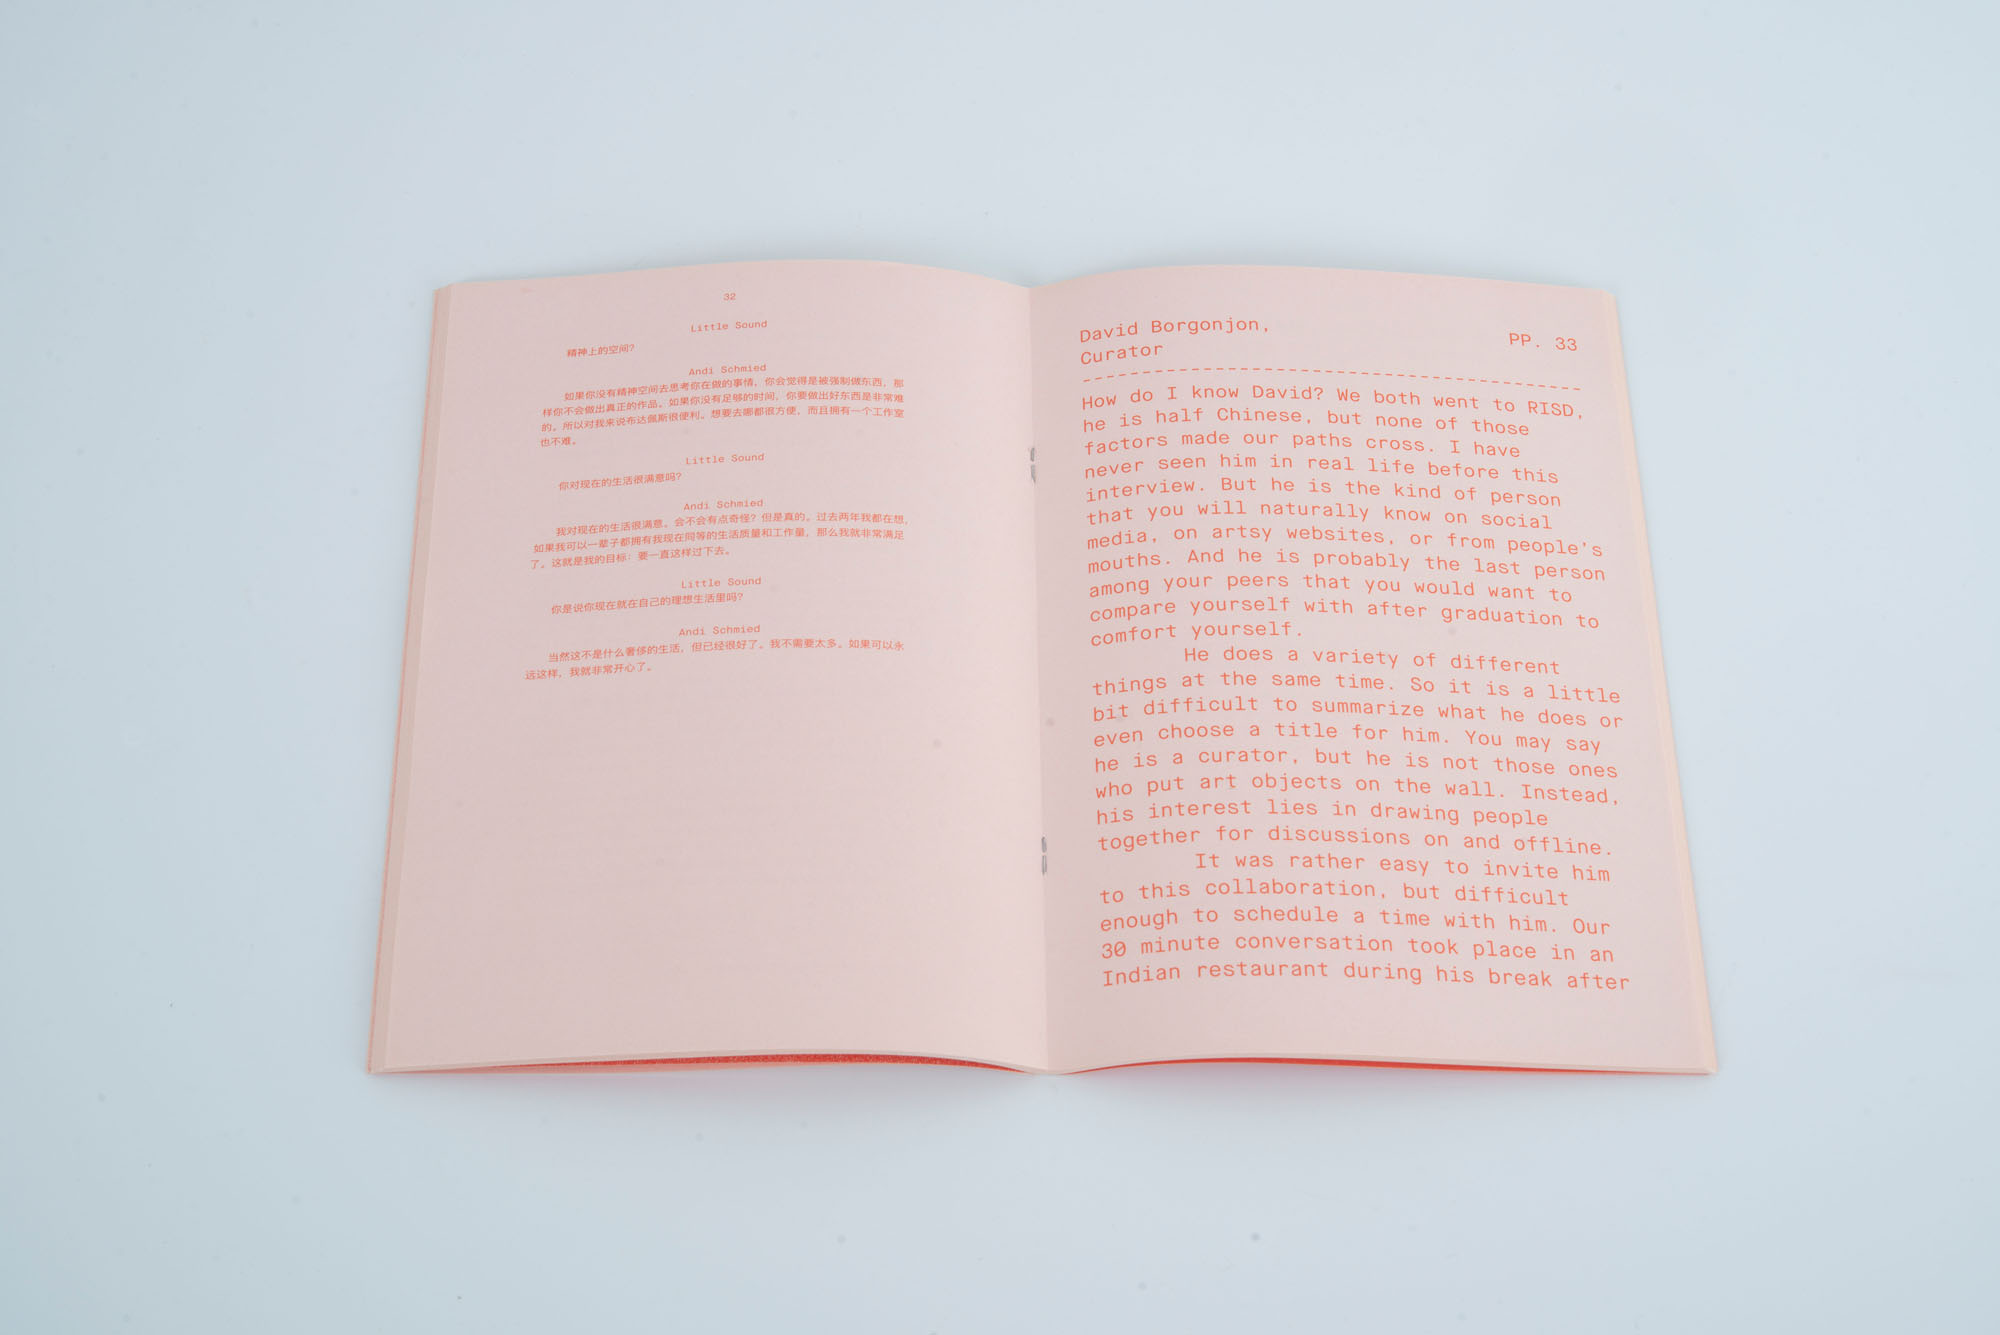 32
Little Sound
精神上的空间？
Andi Schmied
如果你没有精神空间去思考你在做的事情，你会觉得是被强制做东西，那
样你不会做出真正的作品。如果你没有足够的时间，你要做出好东西是非常难
的。所以对我来说布达佩斯很便利。想要去哪都很方便，而且拥有一个工作室
也不难。
Little Sound
你对现在的生活很满意吗？
Andi Schmied
我对现在的生活很满意。会不会有点奇怪？但是真的。过去两年我都在想，
如果我可以一辈子都拥有我现在同等的生活质量和工作量，那么我就非常满足
了。这就是我的目标：要一直这样过下去。
Little Sound
你是说你现在就在自己的理想生活里吗？
Andi Schmied
当然这不是什么奢侈的生活，但已经很好了。我不需要太多。如果可以永
远这样，我就非常开心了。
David Borgonjon,
Curator
PP. 33
How do I know David? We both went to RISD,
he is half Chinese, but none of those
factors made our paths cross. I have
never seen him in real life before this
interview. But he is the kind of person
that you will naturally know on social
media, on artsy websites, or from people's
mouths. And he is probably the last person
among your peers that you would want to
compare yourself with after graduation to
comfort yourself.
He does a variety of different
things at the same time. So it is a little
bit difficult to summarize what he does or
even choose a title for him. You may say
he is a curator, but he is not those ones
who put art objects on the wall. Instead,
his interest lies in drawing people
together for discussions on and offline.
It was rather easy to invite him
to this collaboration, but difficult
enough to schedule a time with him. Our
30 minute conversation took place in an
Indian restaurant during his break after